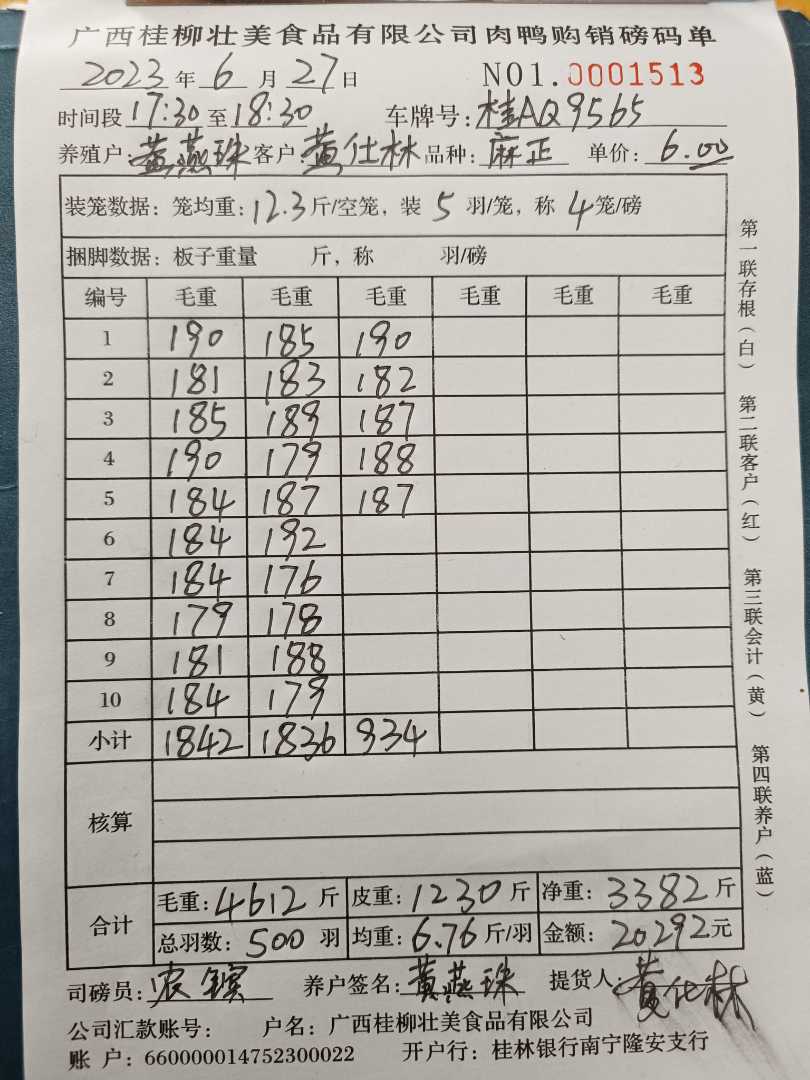 广西桂柳壮美食品有限公司肉鸭购销磅码单
2023年6月27日 NO1.0001513
时间段17:30至18:30 车牌号:桂AQ9565
养殖户:黄燕珠 客户:黄仕林 品种:麻正 单价:6.00
装笼数据:笼均重:12.3斤/空笼,装5羽/笼,称4笼/磅
捆脚数据:板子重量 斤,称 羽/磅
编号 毛重 毛重 毛重 毛重 毛重 毛重
1 190 185 190
2 181 183 182
3 185 189 187
4 190 179 188
5 184 187 187
6 184 192
7 184 176
8 179 178
9 181 188
10 184 179
小计 1842 1836 934
核算
合计 毛重:4612斤 皮重:1230斤 净重:3382斤
总羽数:500羽 均重:6.76斤/羽 金额:20292元
司磅员:农镔 养户签名:黄燕珠 提货人:黄仕林
公司汇款账号: 户名:广西桂柳壮美食品有限公司
账 户:660000014752300022 开户行:桂林银行南宁隆安支行
第一联存根(白) 第二联客户(红) 第三联会计(黄) 第四联养户(蓝)